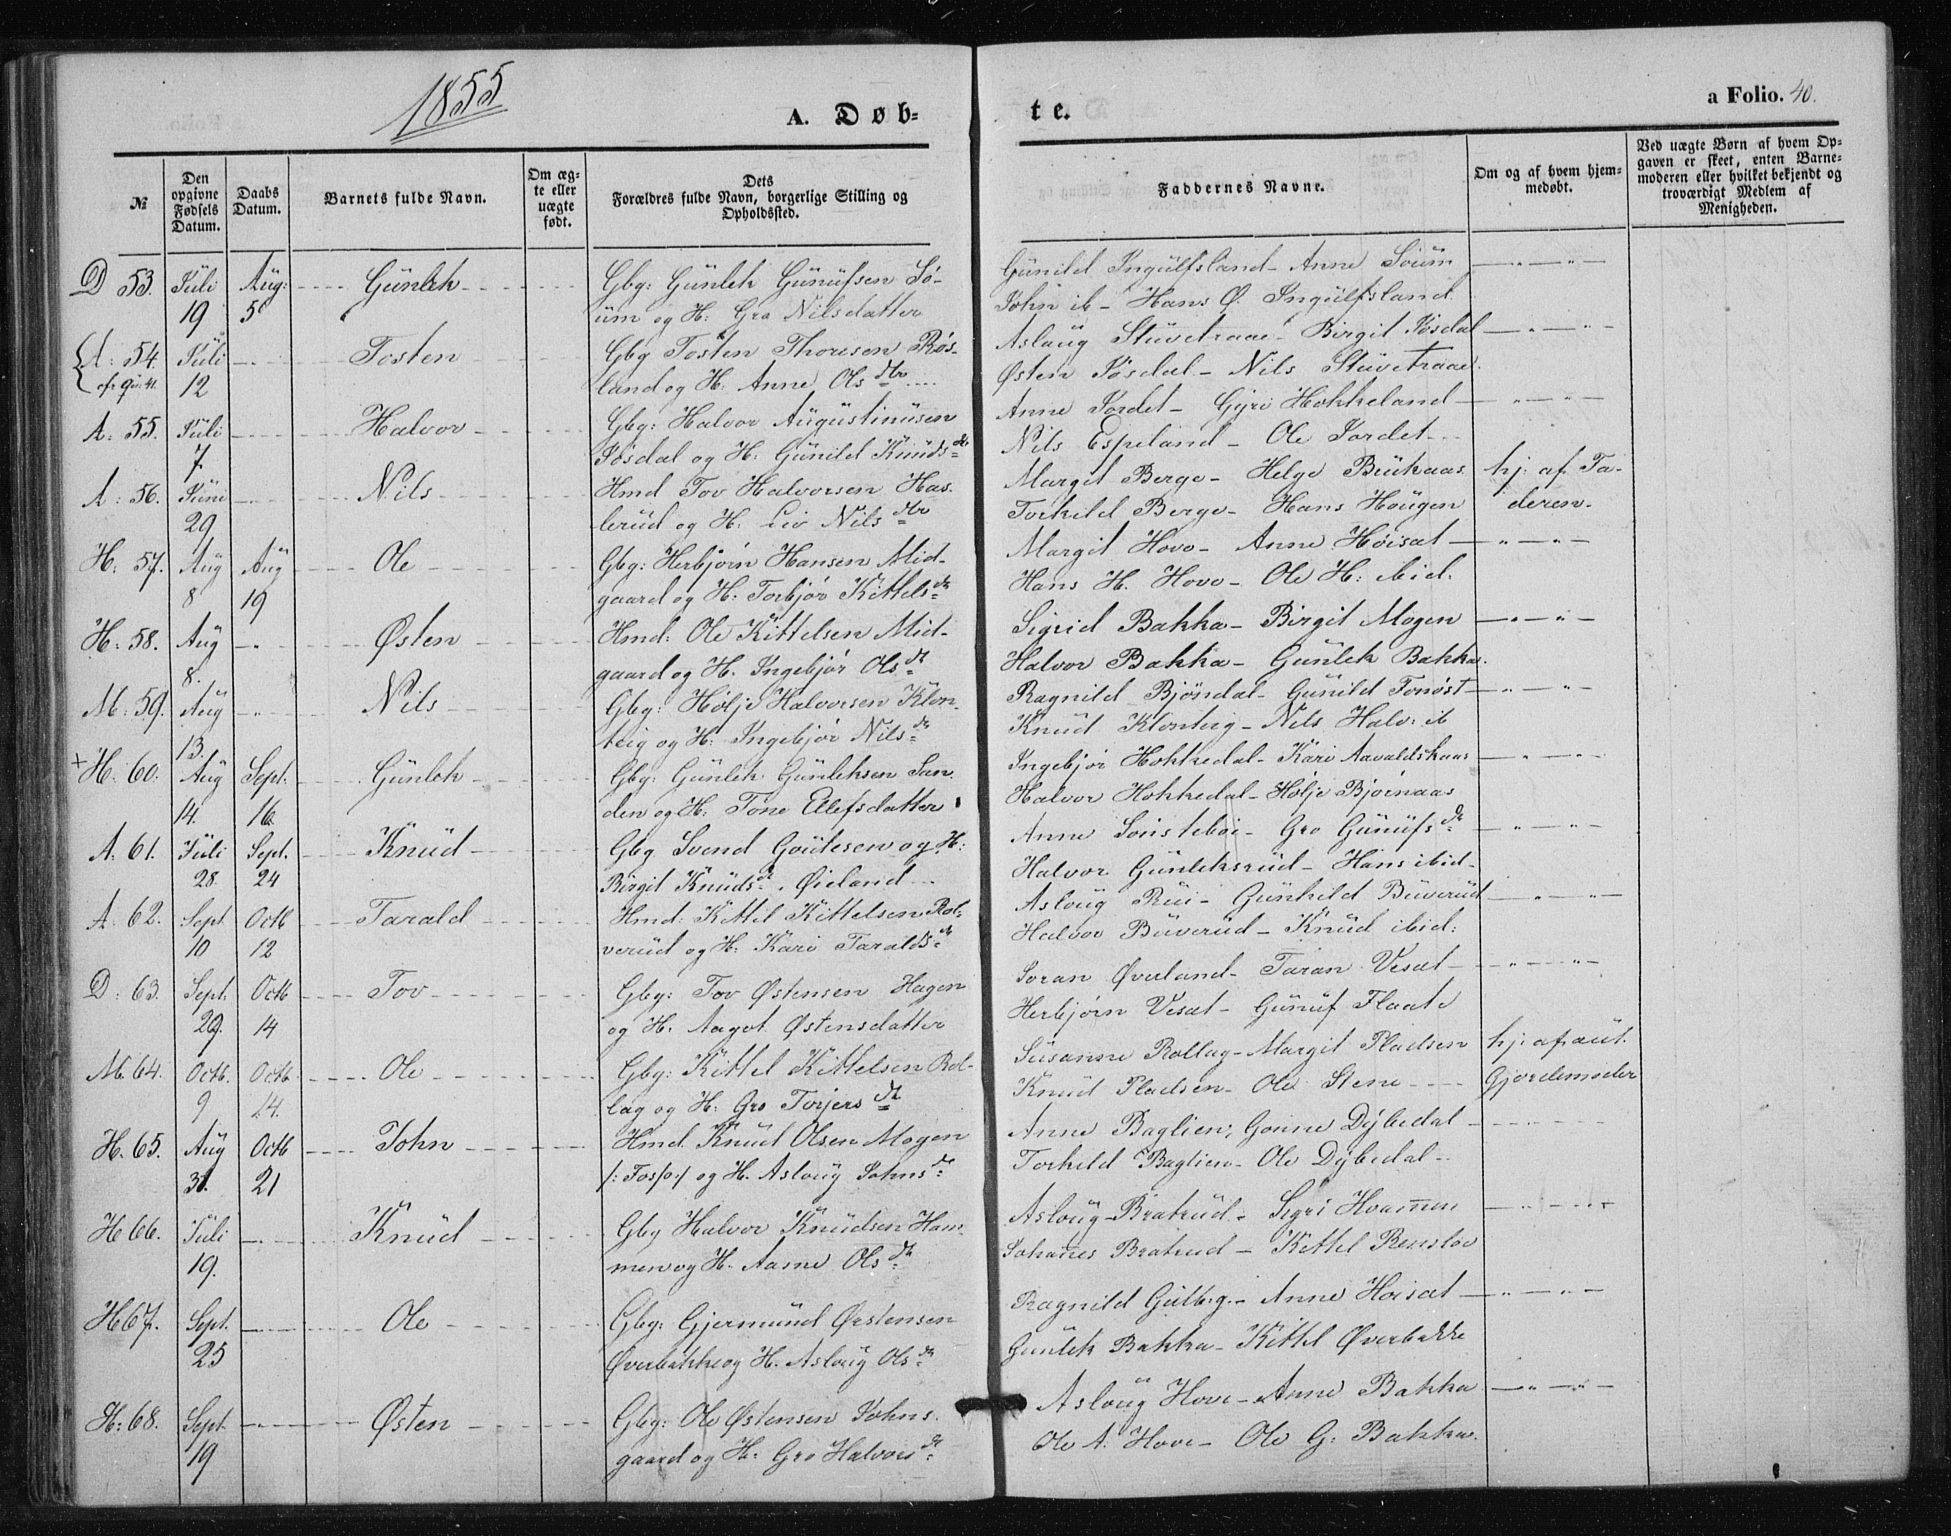 1855
A. Døb-
te.
a Folio. 40.
№
Den opgivne Fødsels Datum.
Daabs Datum.
Barnets fulde Navn.
Om ægte eller uægte født.
Dets
Forældres fulde Navn, borgerlige Stilling og Opholdssted.
Faddernes Navne.
Om og af hvem hjemmedøbt.
Ved uægte Børn af hvem Opgaven er skeet, enten Barnemoderen eller hvilket bekjendt og troværdigt Medlem af Menigheden.
D 53. Juli Aug: Gunlek Gbg: Gunlek Gunufsen Sø- Gunild Ingulfsland - Anne Soum
19 5 um og H: Gro Nilsdatter John ib - Hans Ø. Ingulfsland
A: 54. Juli Tosten Gbg Tosten Thoresen Røs- Aslaug Stuvetraae - Birgit Jøsdal
12 land og H: Anne Ols dtr Østen Jøsdal - Nils Stuvetraae
A: 55. Juli Halvor Gbg: Halvor Augustinusen Anne Jordet - Gyri Hokkeland
7. Jøsdal og H: Gunild Knuds dr Nils Espeland - Ole Jordet
A: 56. Juni Nils Hmd Tov Halvorsen Has- Margit Berge - Helge Brukaas hj: af Fa-
29 lerud og H: Liv Nils dtr Torkild Berge - Hans Hougen deren.
H: 57. Aug Aug Ole Gbg: Herbjørn Hansen Mid- Margit Hove - Anne Høisat
8 19 gaard og H: Torbjør Kittels dr Hans H. Hove - Ole H: ibid.
H: 58. Aug Østen Hmd: Ole Kittelsen Mid- Sigrid Bakka - Birgit Mogen
8. gaard og H. Ingebjør Ols dr Halvor Bakka - Gunlek Bakka.
M: 59. Aug Nils Gbg: Hølje Halvorsen Klon- Ragnild Bjøndal - Gunild Fonøst
13. teig og H: Ingebjør Nils dr Knud Klonteig - Nils Halv: ib
+ H: 60. Aug Sept. Gunlek Gbg: Gunlek Gunleksen San Ingebjør Hokkedal - Kari Aavaldskaas
14. 16. den og H: Tone Ellefsdatter Halvor Hokkedal - Hølje Bjørnaas
A: 61. Juli Sept. Knud Gbg Svend Goutesen og H: Anne Soustebøi - Gro Gunufs dr
28. 24 Birgit Knuds dr Øieland Halvor Gunleksrud - Hans ibid
A: 62. Sept Octb Tarald Hmd: Kittel Kittelsen Rol- Asloug Rui - Gunhild Buverud
10 12 verud og H: Kari Taralds dr Halvor Buverud - Knud ibid:
D: 63. Sept. Octb Tov Gbg: Tov Østensen Hagen Joran Øverland - Taran Vesat
29. 14 og H. Aagot Østensdatter Herbjørn Vesat - Gunuf Flaate
M. 64. Octb. Octb Ole Gbg: Kittel Kittelsen Rol- Susanne Rollag - Margit Pladsen hj: af aut.
9 14. lag og H: Gro Torjers dr Knud Pladsen - Ole Stene Gjordemoder
H. 65. Aug Octb John Hmd. Knud Olsen Mogen Anne Baglien, Gonne Dybedal
31. 21 /: Foss :/ og H. Asloug Johns dr Torkild Baglien - Ole Dybedal
H 66. Juli Knud Gbg Halvor Knudsen Ham- Asloug Bratrud - Sigri Hvammen
19. men og H. Aasne Ols dr Johanes Bratrud - Kittel
H 67. Sept. Ole Gbg: Gjermund Østensen Ragnild Gutb.g. - Anne Høisat
25 Øverbakke og H. Asloug Ols dr Gunlek Bakka - Kittel Øverbakke
H: 68. Sept. Østen Gbg: Ole Østensen Johns- Asloug Hove - Anne Bakka
19 gaard og H: Gro Halvors dr Ole A: Hove - Ole G: Bakka.